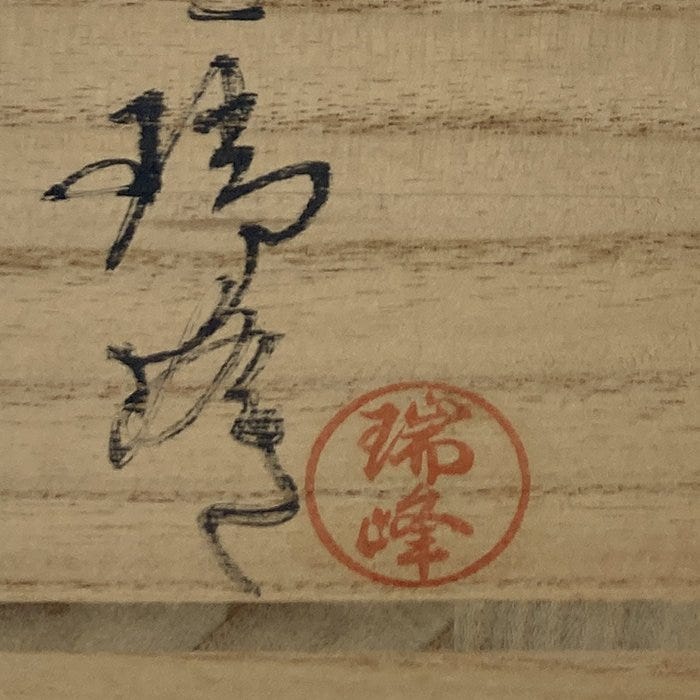 瑞峰
瑞峰